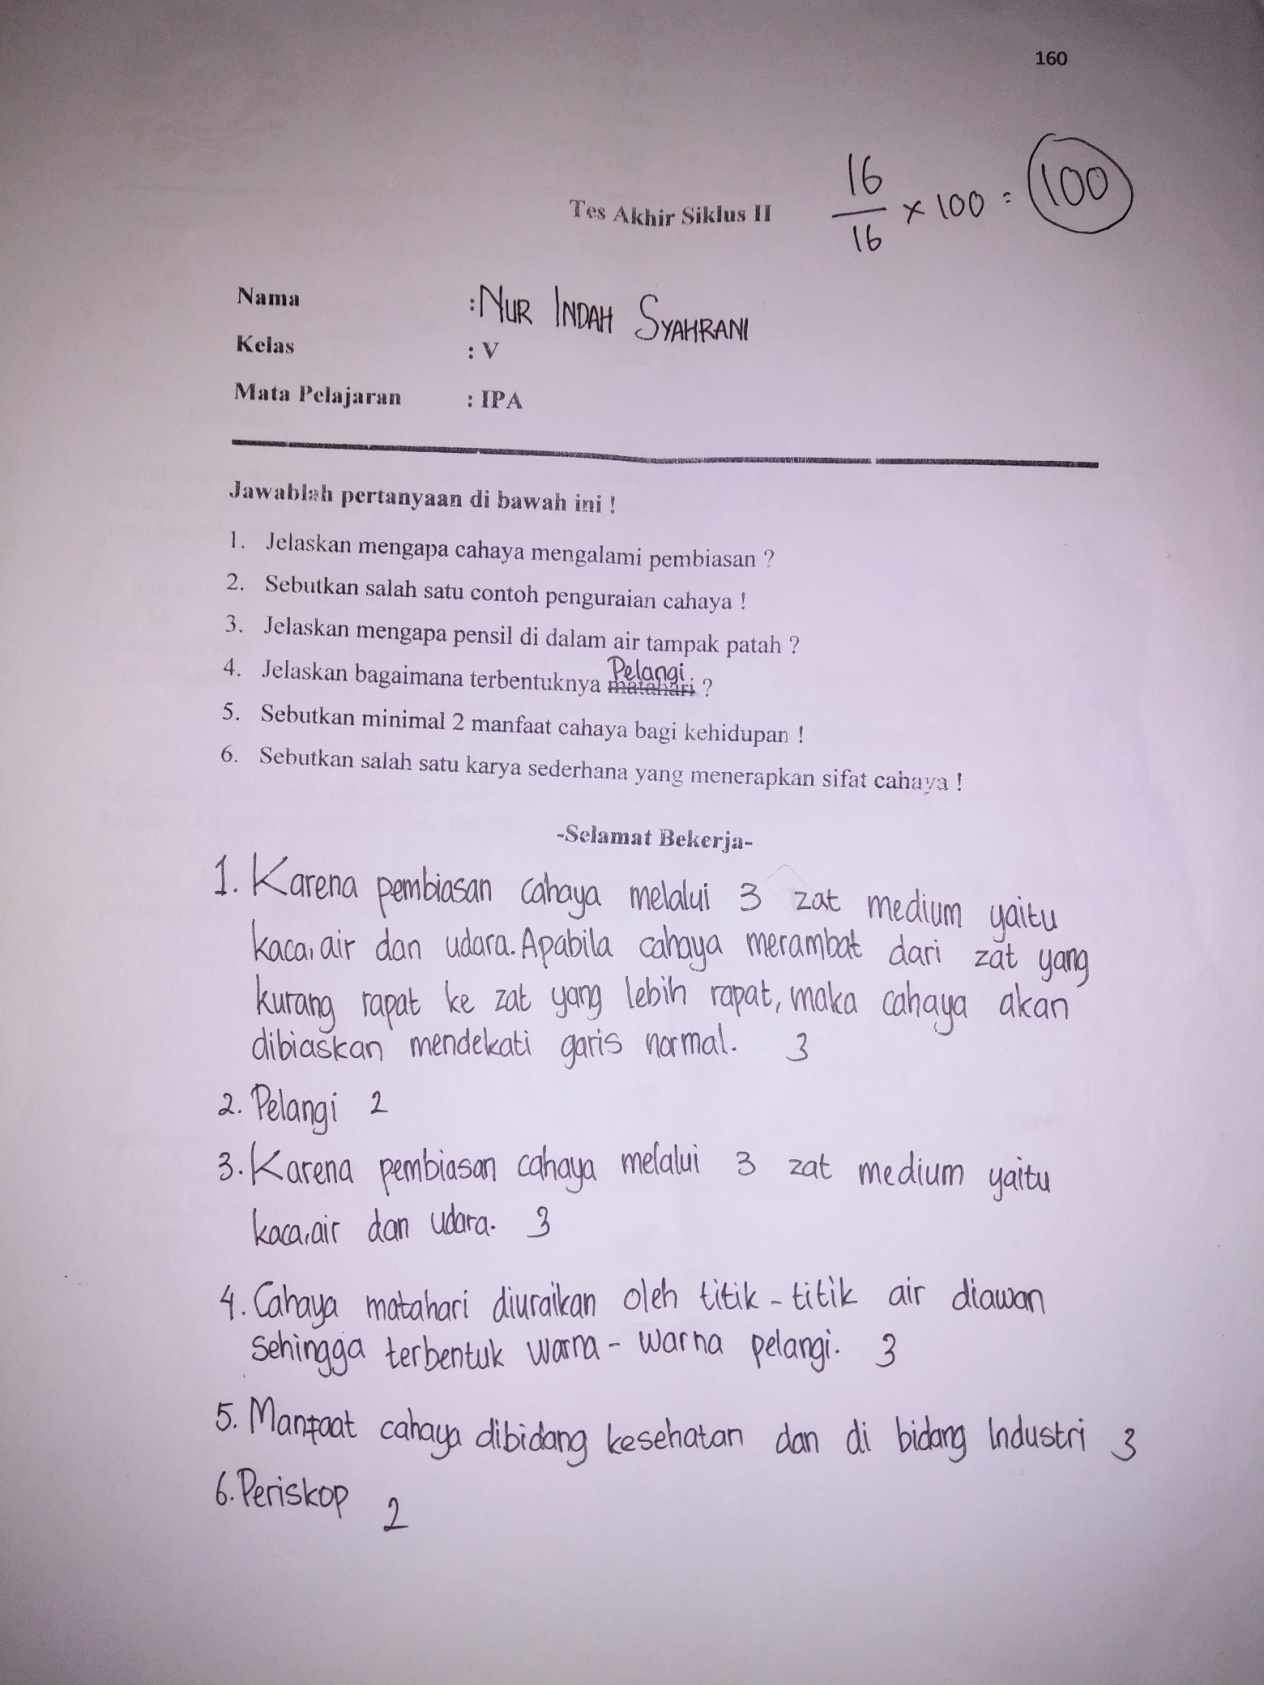 160
Tes Akhir Siklus II
16
16
x 100 = 100
Nama : NUR INDAH SYAHRANI
Kelas : V
Mata Pelajaran : IPA
Jawablah pertanyaan di bawah ini !
1. Jelaskan mengapa cahaya mengalami pembiasan ?
2. Sebutkan salah satu contoh penguraian cahaya !
3. Jelaskan mengapa pensil di dalam air tampak patah ?
Pelangi
4. Jelaskan bagaimana terbentuknya matahari ?
5. Sebutkan minimal 2 manfaat cahaya bagi kehidupan !
6. Sebutkan salah satu karya sederhana yang menerapkan sifat cahaya !
-Selamat Bekerja-
1. Karena pembiasan cahaya melalui 3 zat medium yaitu
kaca, air dan udara. Apabila cahaya merambat dari zat yang
kurang rapat ke zat yang lebih rapat, maka cahaya akan
dibiaskan mendekati garis normal. 3
2. Pelangi 2
3. Karena pembiasan cahaya melalui 3 zat medium yaitu
kaca, air dan udara. 3
4. Cahaya matahari diuraikan oleh titik - titik air diawan
sehingga terbentuk warna - warna pelangi. 3
5. Manfaat cahaya dibidang kesehatan dan di bidang Industri 3
6. Periskop 2